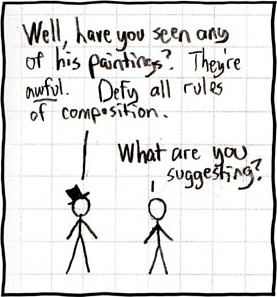 Well, have you seen any
of his paintings? They're
awful. Defy all rules
of composition.
What are you
suggesting?